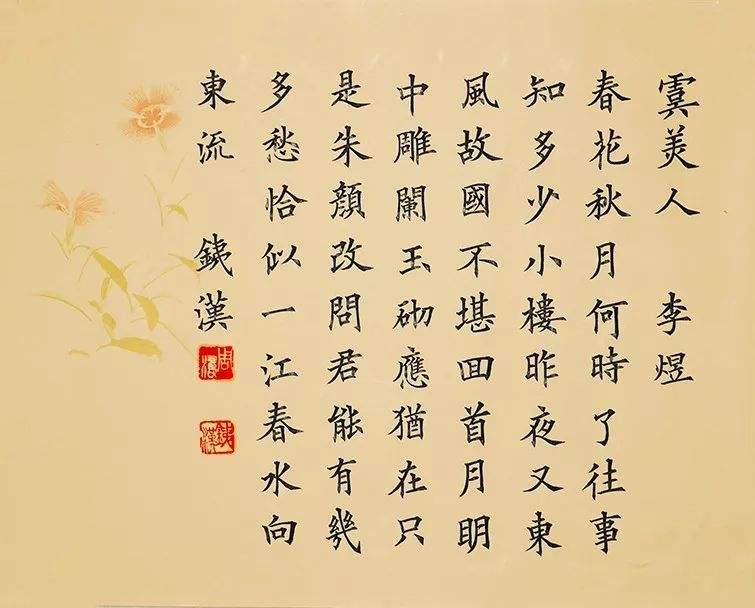 虞美人 李煜
春花秋月何時了往事
知多少小樓昨夜又東
風故國不堪囬首月眀
中雕闌玉砌應猶在只
是朱顏改問君能有幾
多愁恰似一江春水向
東流 銕漢
周
銕漢